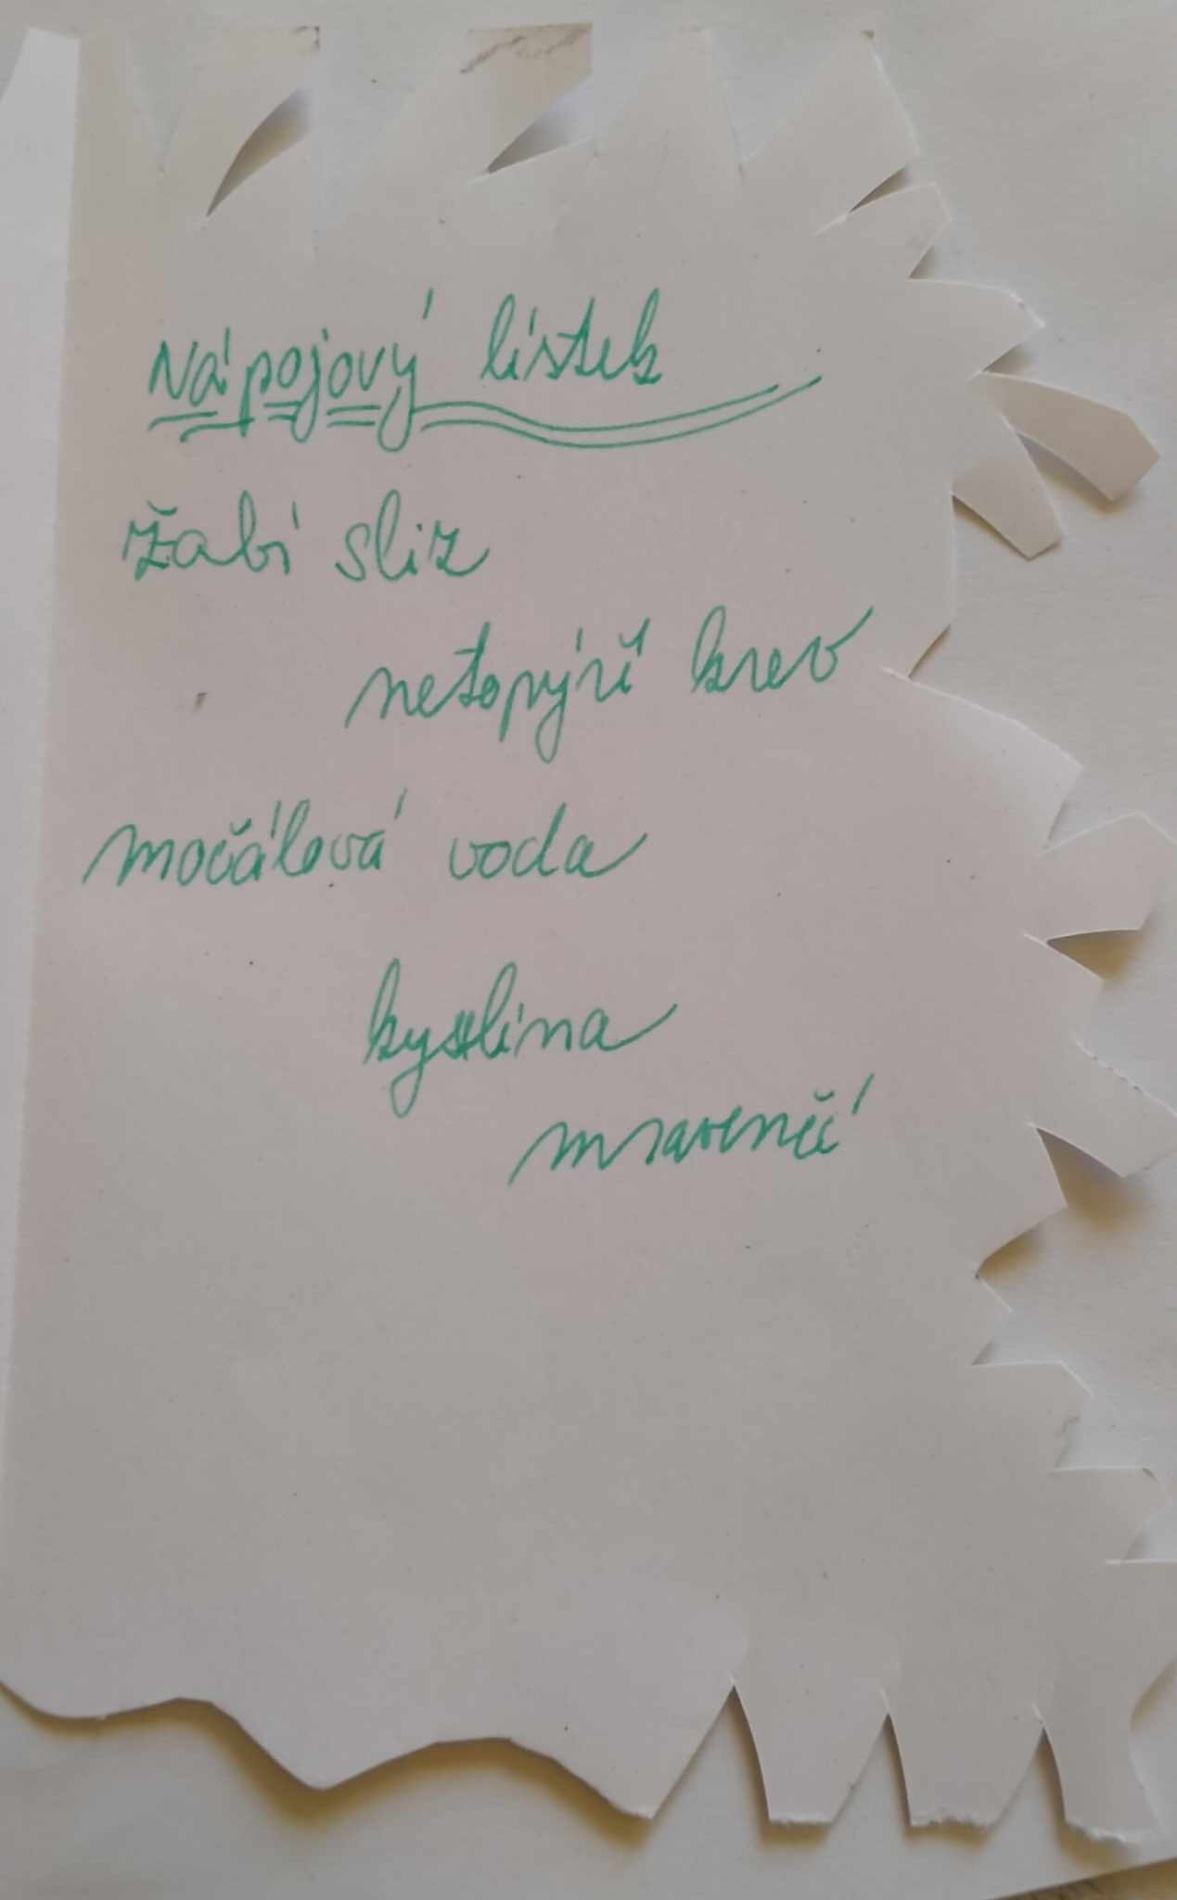 Nápojový lístek
žabí sliz
netopýří krev
močálová voda
kyselina
mravenčí